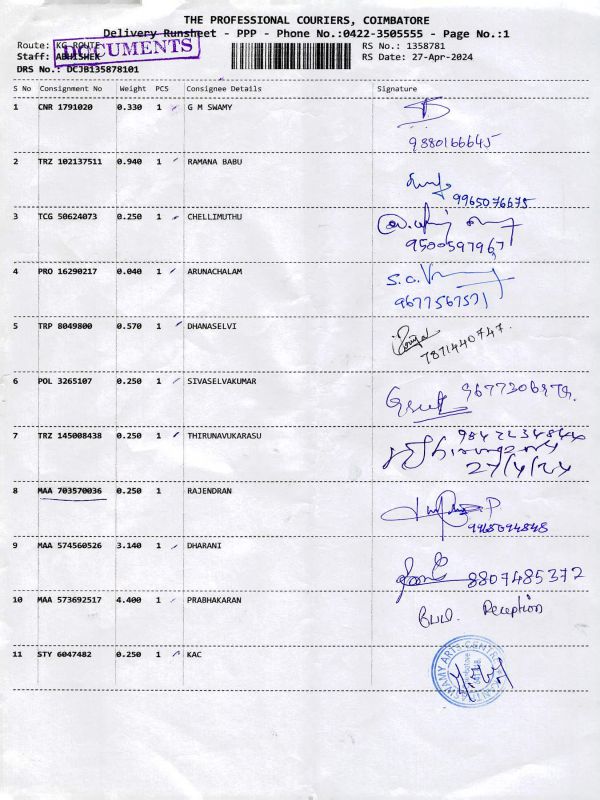 THE PROFESSIONAL COURIERS, COIMBATORE
Delivery Runsheet - PPP - Phone No.:0422-3505555 - Page No.:1
Route: KG ROUTE RS No.: 1358781
DOCUMENTS
Staff: ABHISHEK RS Date: 27-Apr-2024
DRS No.: DCJB135878101
S No Consignment No Weight PCS Consignee Details Signature
1 CNR 1791020 0.330 1 G M SWAMY
9880166645
2 TRZ 102137511 0.940 1 RAMANA BABU
9965076675
3 TCG 50624073 0.250 1 CHELLIMUTHU
9500597967
4 PRO 16290217 0.040 1 ARUNACHALAM
9677567571
5 TRP 8049800 0.570 1 DHANASELVI
7871440747.
6 POL 3265107 0.250 1 SIVASELVAKUMAR
7 TRZ 145008438 0.250 1 THIRUNAVUKARASU
27/4/24
8 MAA 703570036 0.250 1 RAJENDRAN
9965094848
9 MAA 574560526 3.140 1 DHARANI
8807485372
10 MAA 573692517 4.400 1 PRABHAKARAN
Reception
11 STY 6047482 0.250 1 KAC